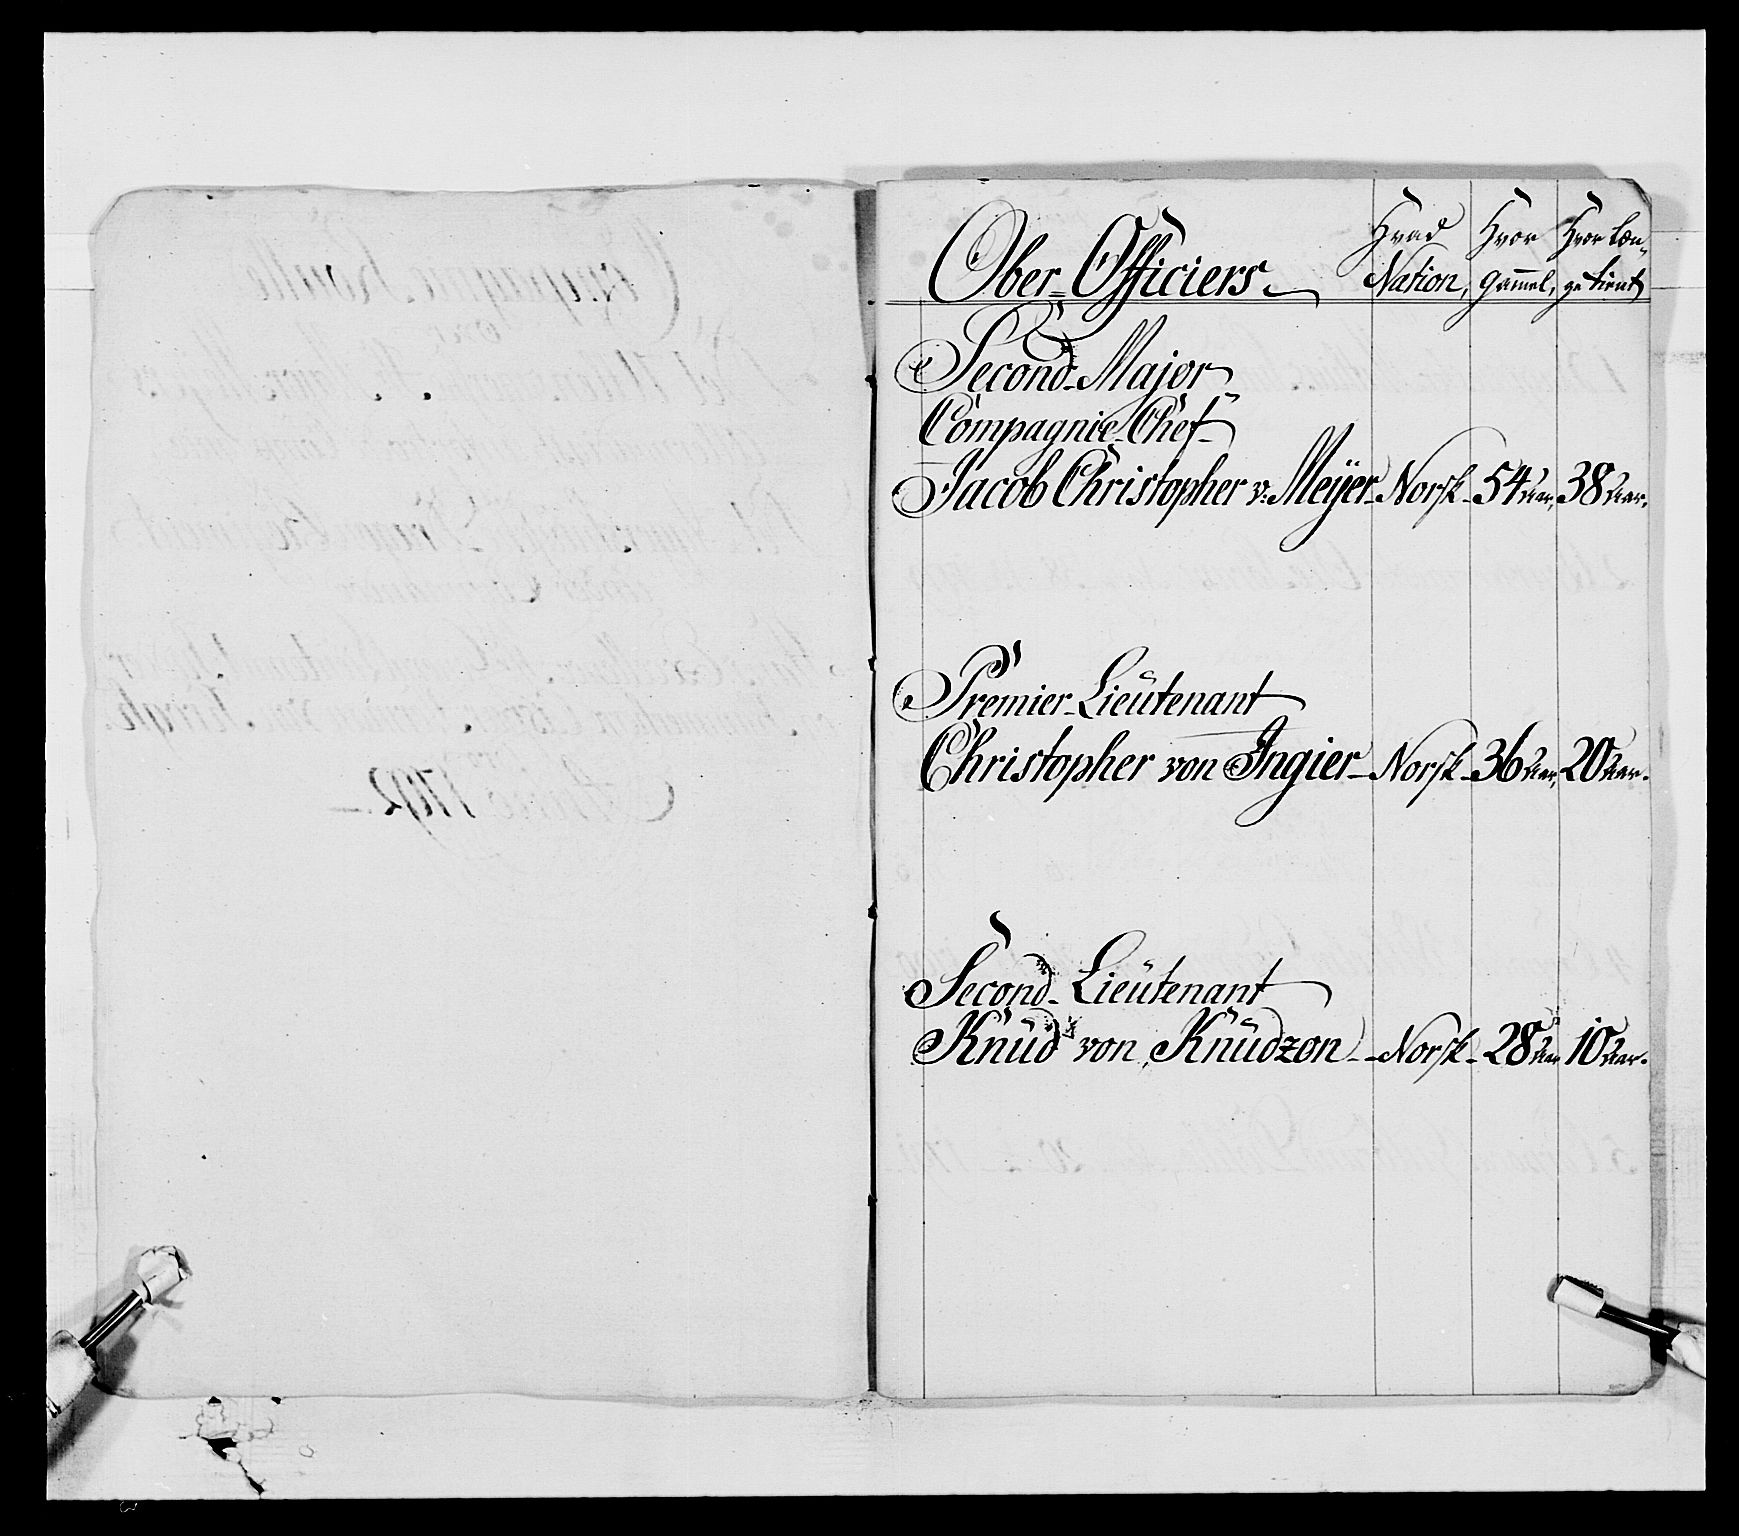 Ober-Officiers
Hvad Nation,
Hvor gam̄el,
Hvor læn-
ge tient
Second-Major
Compagnie-Chef
Jacob Christopher v: Meÿer - Norsk - 54 Aar, 38 Aar.
Premier-Lieutenant
Christopher von Ingier - Norsk - 36 Aar, 20 Aar.
Second-Lieutenant
Knud von Knudzon - Norsk - 28 Aar 10 Aar.